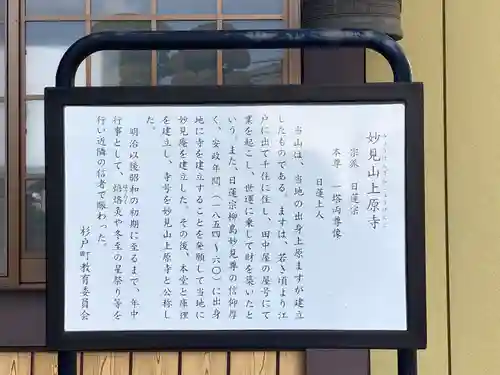 妙見山上原寺
みょうけんざんじょうげんじ
宗派　日蓮宗
本尊　一塔両尊像
日蓮上人
当山は、当地の出身上原ますが建立
したものである。ますは、若き頃より江
戸に出て千住に住し、田中屋の屋号にて
業を起こし、世運に乗じて財を築いたと
いう。また、日蓮宗柳島妙見尊の信仰厚
く、安政年間（一八五四～六〇）に出身
地に寺を建立することを発願して当地に
妙見庵を建立した。その後、本堂と庫裡
を建立し、寺号を妙見山上原寺と公称し
た。
明治以後昭和の初期に至るまで、年中
行事として、焙烙灸や冬至の星祭り等を
行い近隣の信者で賑わった。
杉戸町教育委員会